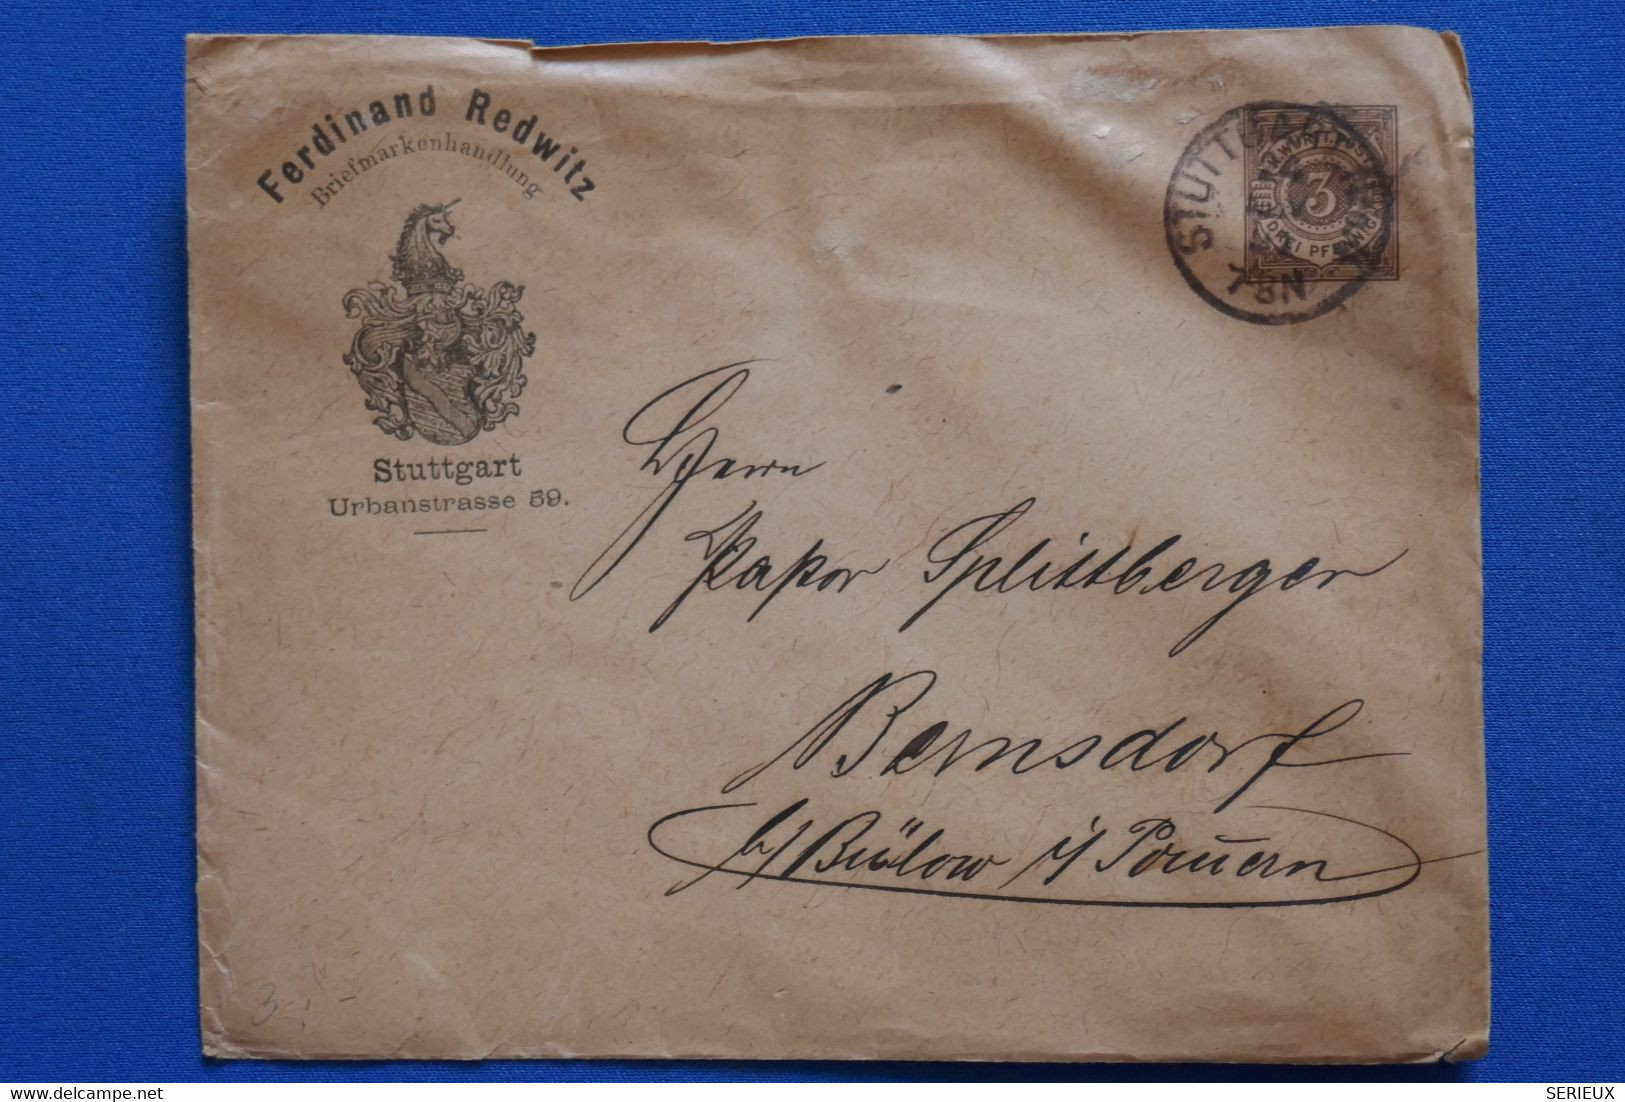 Ferdinand Redwitz
Briefmarkenhandlung
Stuttgart
Urbanstrasse 59.
K. WÜRTT. POST
3
DREI PFENNIG
STUTTGART
7-8N
Herrn
Kapor Splittberger
Bernsdorf
b/ Bülow i/ Pom̄ern
3.-
SERIEUX
delcampe.net